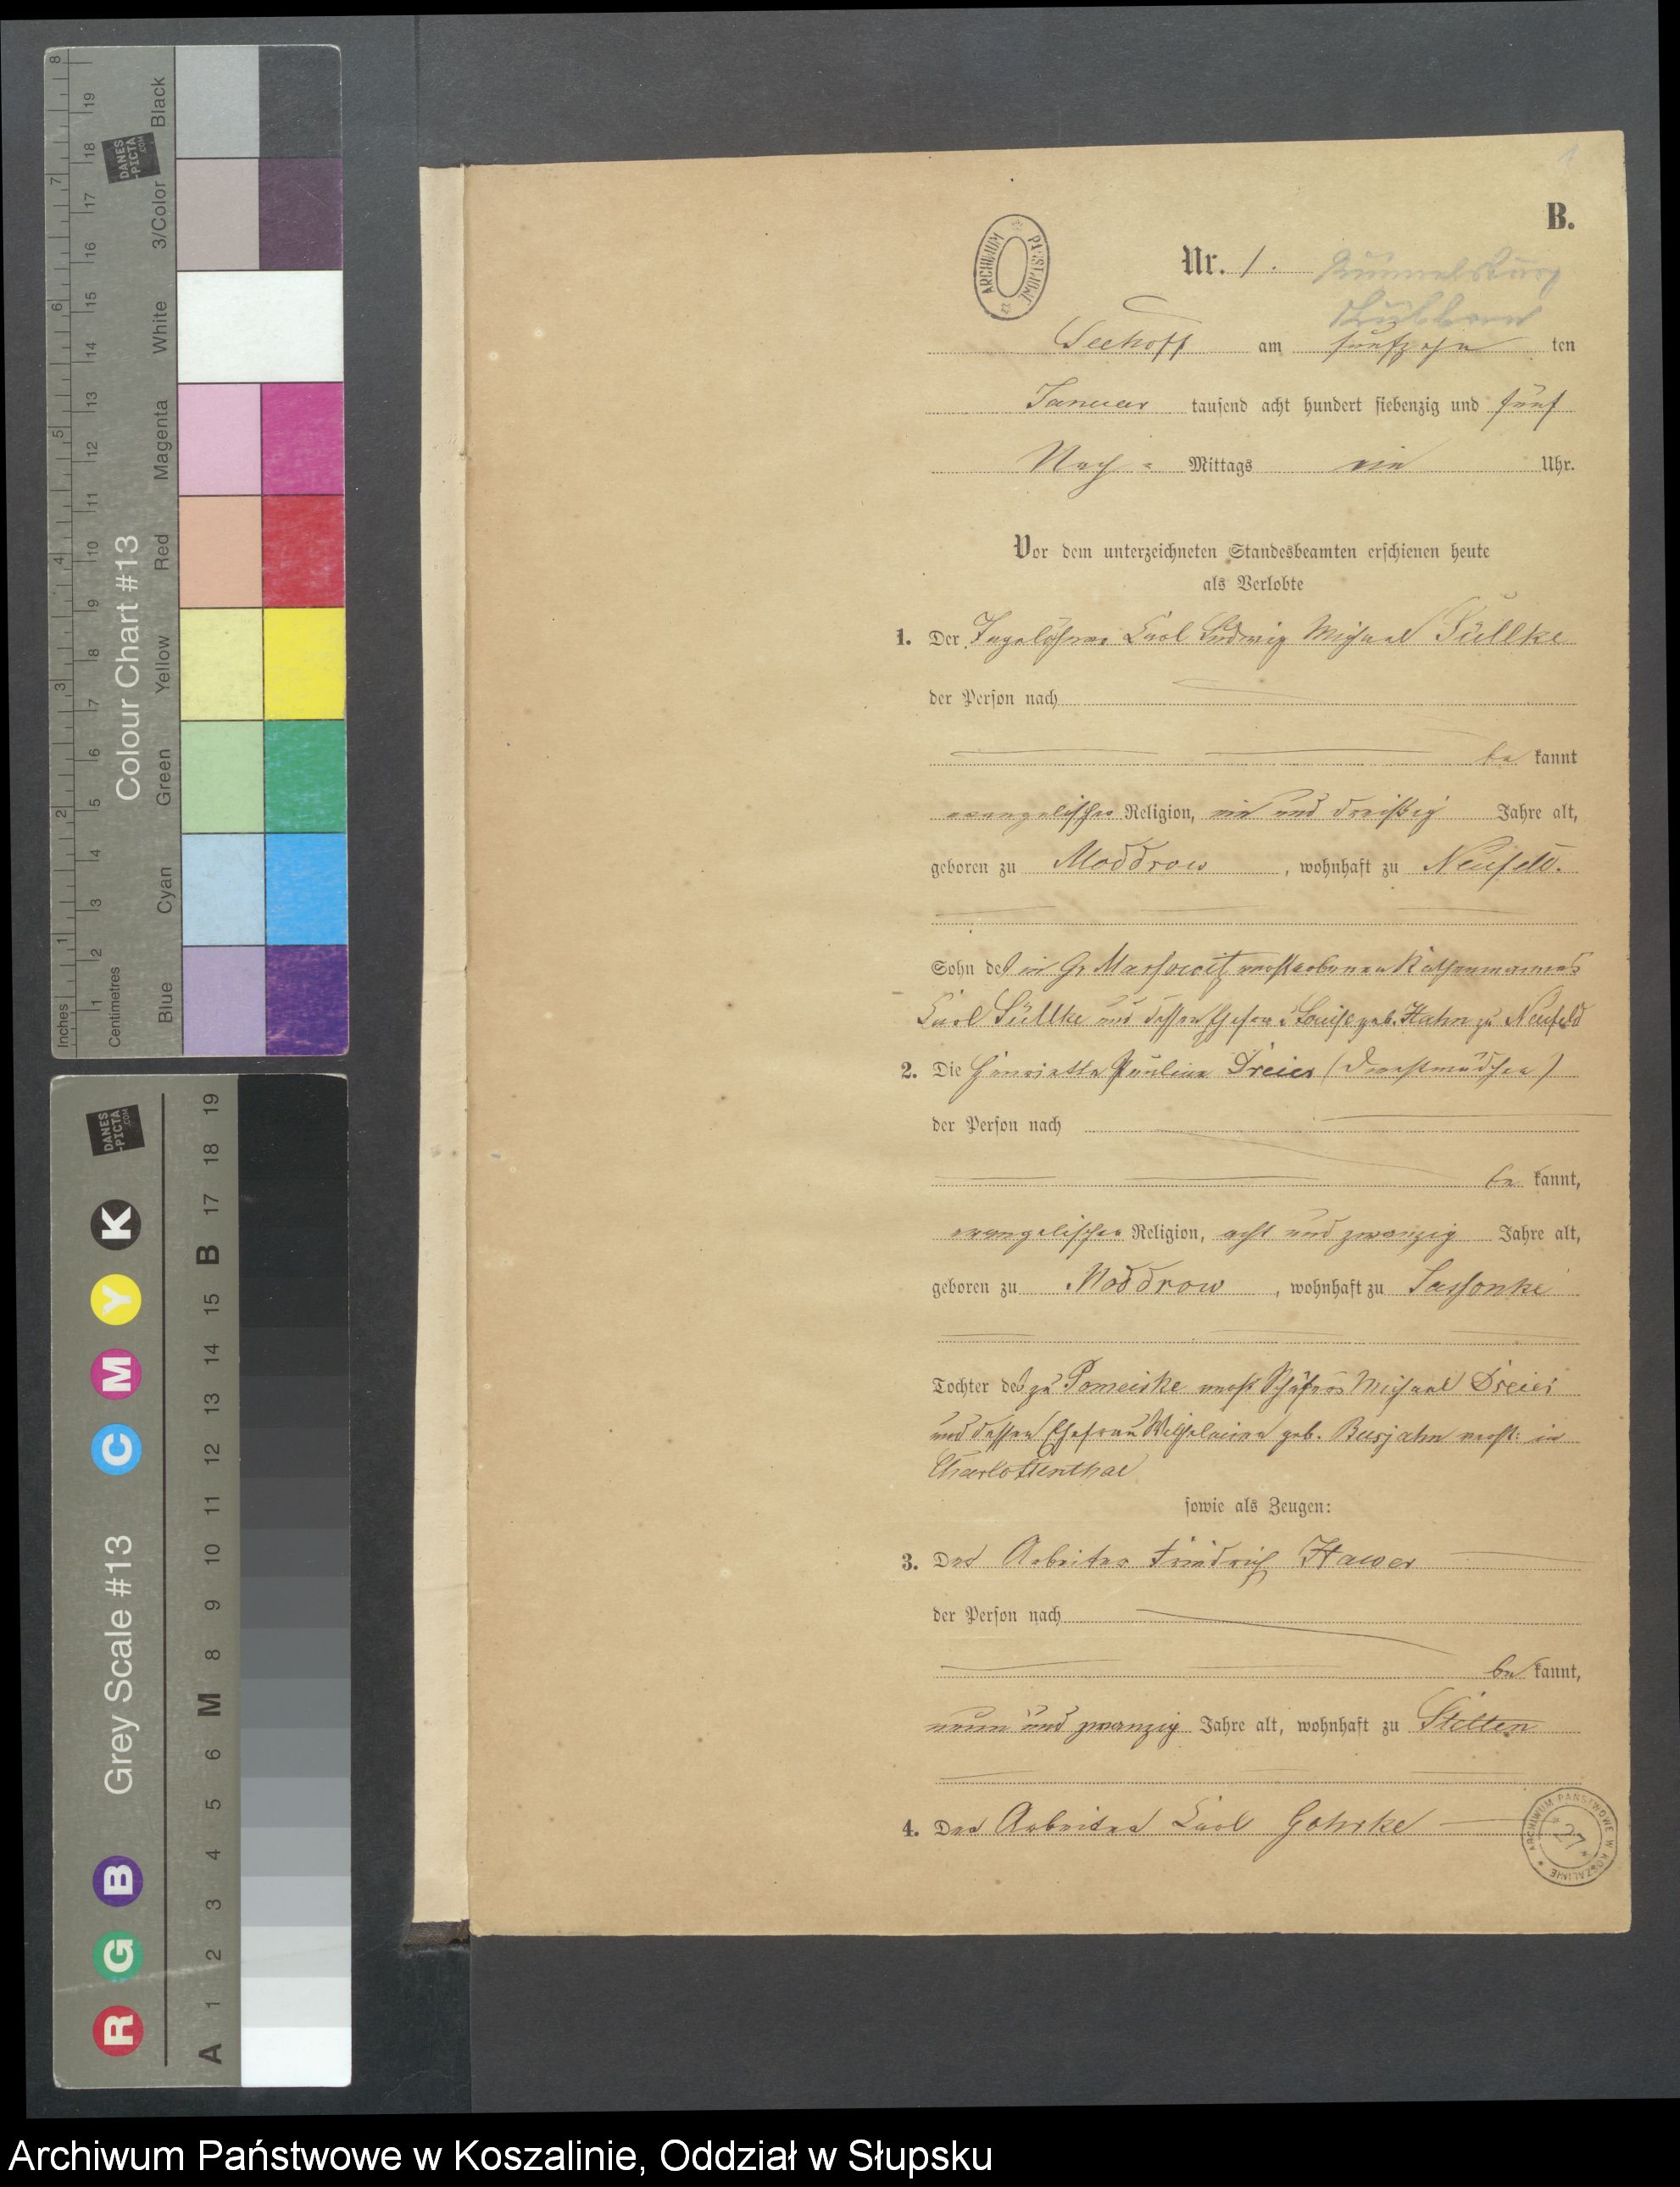 B.
Nr. 1.
Seehoff am fünfzehn ten
Januar tausend acht hundert siebenzig und fünf
Nach = Mittags ein Uhr.
Vor dem unterzeichneten Standesbeamten erschienen heute
als Verlobte
1. Der Tagelöhner Carl Ludwig Michael Süllke
der Person nach
be kannt
evangelischer Religion, ein und dreißig Jahre alt,
geboren zu Moddrow, wohnhaft zu Neufeld.
Sohn des in Gr Massowitz verstorbenen Käthnermanns
Carl Süllke und dessen Ehefrau Louise geb. Hahn zu Neufeld
2. Die Henriette Pauline Dreier (Dienstmädchen)
der Person nach
be kannt,
evangelischer Religion, acht und zwanzig Jahre alt,
geboren zu Moddrow, wohnhaft zu Sassonke
Tochter des zu Pomeiske verst Schäfers Michael Dreier
und dessen Ehefrau Wilhelmine geb. Busjahn verst: in
Charlottenthal
sowie als Zeugen:
3. Der Arbeiter Friedrich Hawer
der Person nach
be kannt,
neun und zwanzig Jahre alt, wohnhaft zu
4. Der Arbeiter Carl Gohrke
ARCHIWUM PAŃSTWOWE
ARCHIWUM PAŃSTWOWE W KOSZALINIE
27
8 7 6 5 4 3 2 1 Inches
19 18 17 16 15 14 13 12 11 10 9 8 7 6 5 4 3 2 1 Centimetres
Colour Chart #13
Black
3/Color
White
Magenta
Red
Yellow
Green
Cyan
Blue
DANES
-PICTA
.COM
DANES
-PICTA
.COM
R G B Grey Scale #13 C M Y K
A 1 2 3 4 5 6 M 8 9 10 11 12 13 14 15 B 17 18 19
Archiwum Państwowe w Koszalinie, Oddział w Słupsku